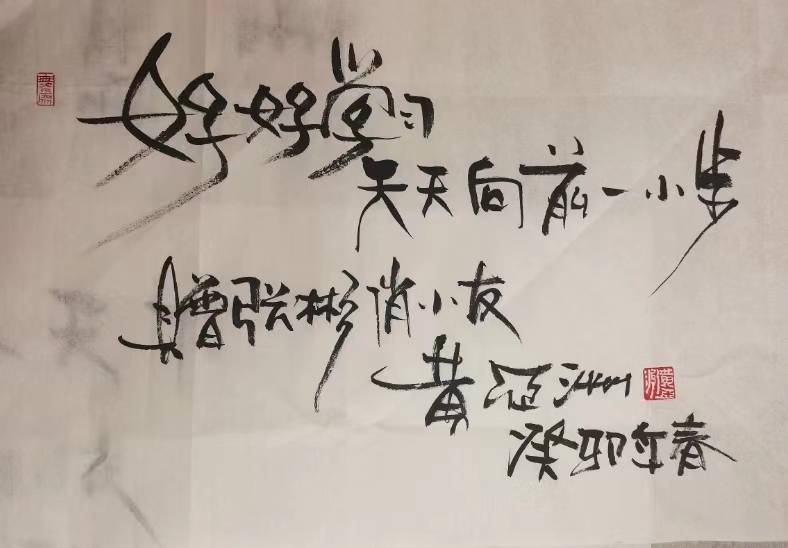 好好学习
天天向前一小步
赠张彬俏小友
黄亚洲
癸卯年春